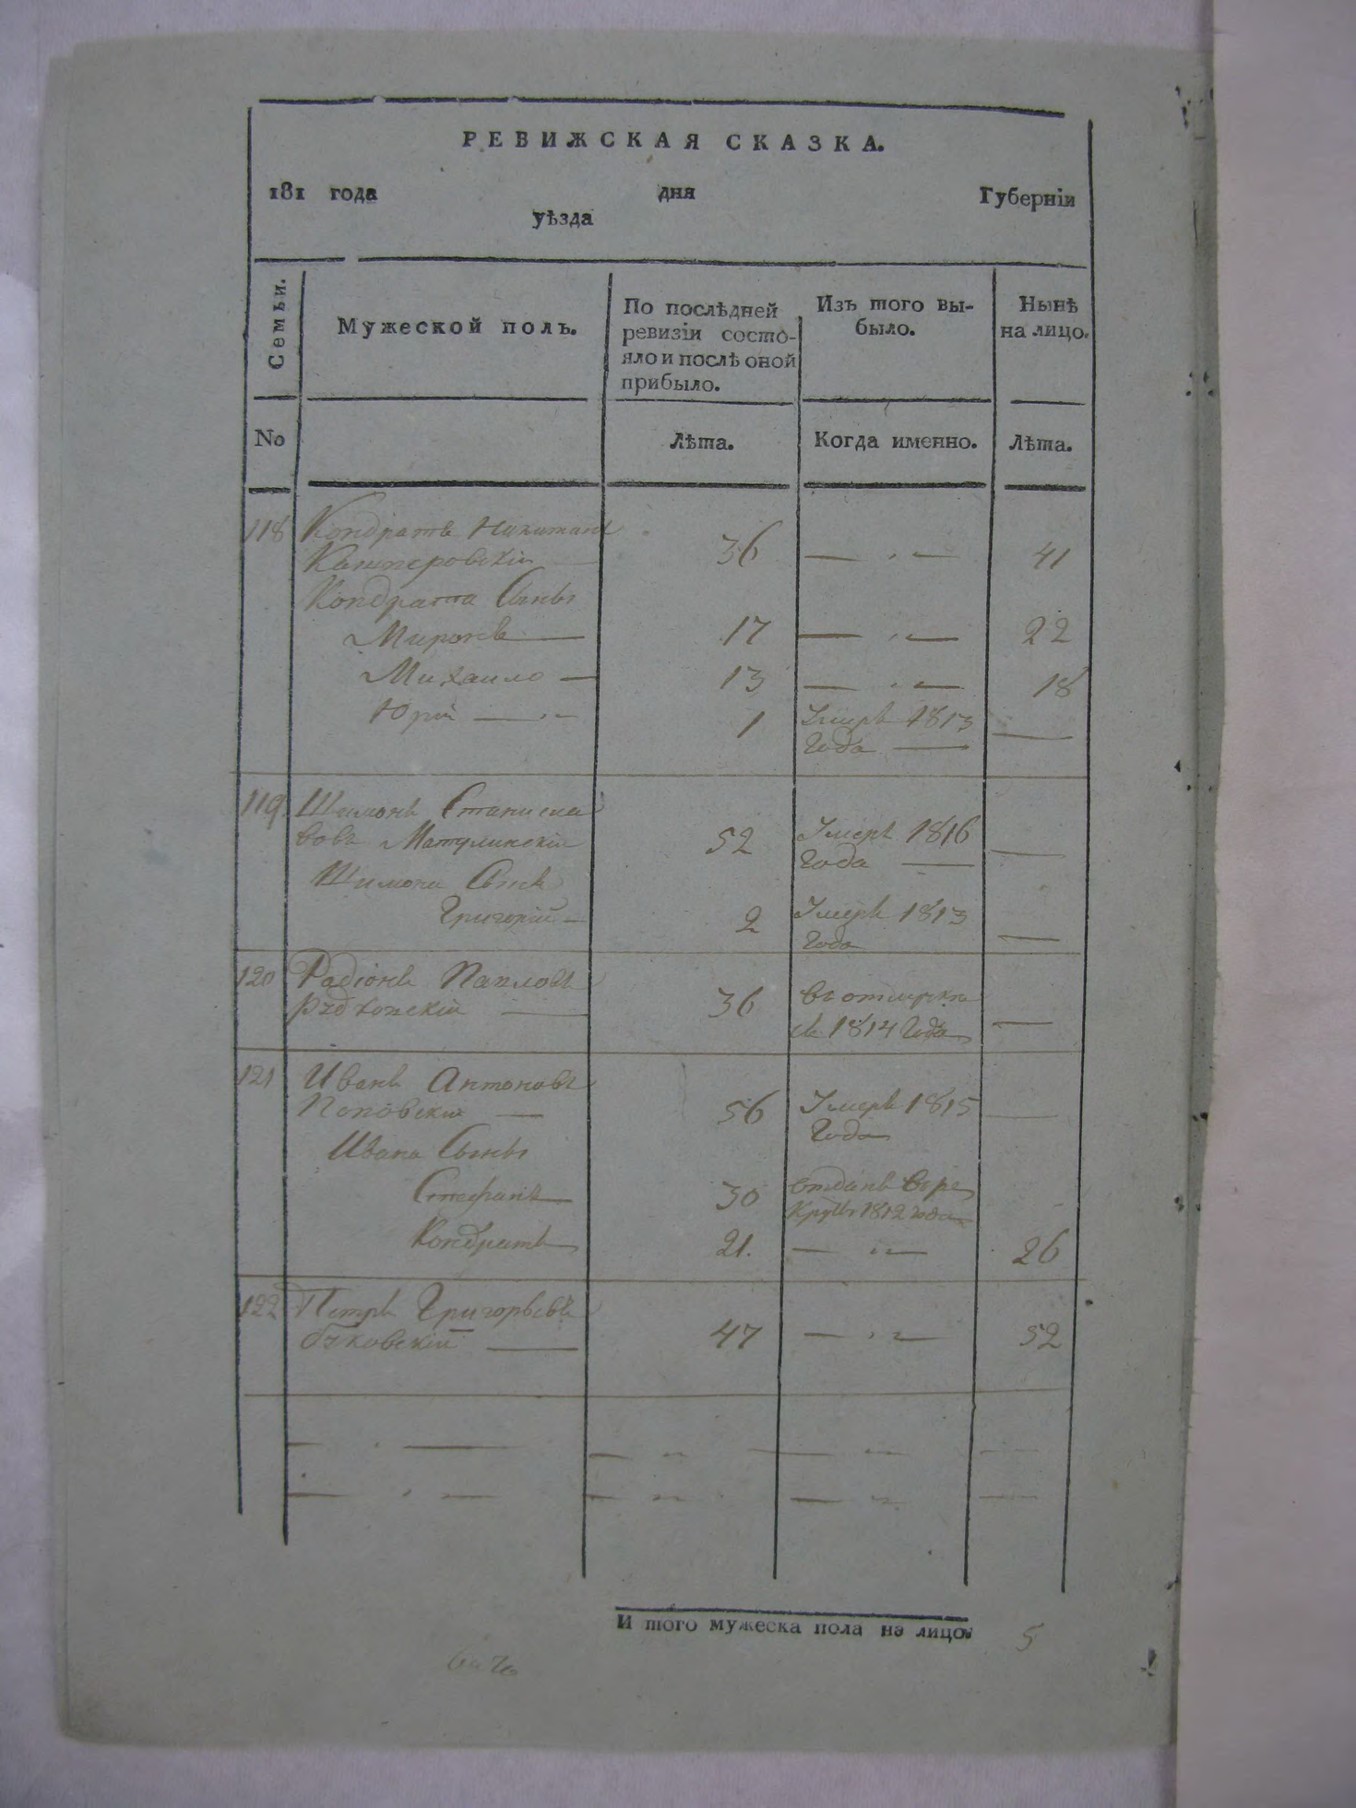 РЕВИЖСКАЯ СКАЗКА.
181 года дня Губерніи
уѣзда
Семьи.
Мужеской полъ.
По послѣдней
ревизіи состо-
яло и послѣ оной
прибыло.
Изъ того вы-
было.
Нынѣ
на лицо.
№
Лѣта.
Когда именно.
Лѣта.
118 Кондратъ Никитинъ
Кашперовскій 36 — „ — 41
Кондрата Сыны
Миронъ — 17 — „ — 22
Михаило — 13 — „ — 18
Юрій — „ — 1 Умеръ 1813
Года — —
119 Шимонъ Станисла
вовъ Матулинскій 52 Умеръ 1816
Года — —
Шимона Сынъ
Григорій — 2 Умеръ 1813
Года —
120 Радіонъ Павловъ
— 36 въ отлучке
съ 1814 Года —
121 Иванъ Антоновъ
Поповскій — 56 Умеръ 1815 —
Года
Ивана Сыны
Стефанъ — 30 отданъ въ ре
круты 1812 года
Кондратъ 21. — „ — 26
122 Петръ Григорьевъ
Бъковскій — 47 — „ — 52
И того мужеска пола на лицо. 5